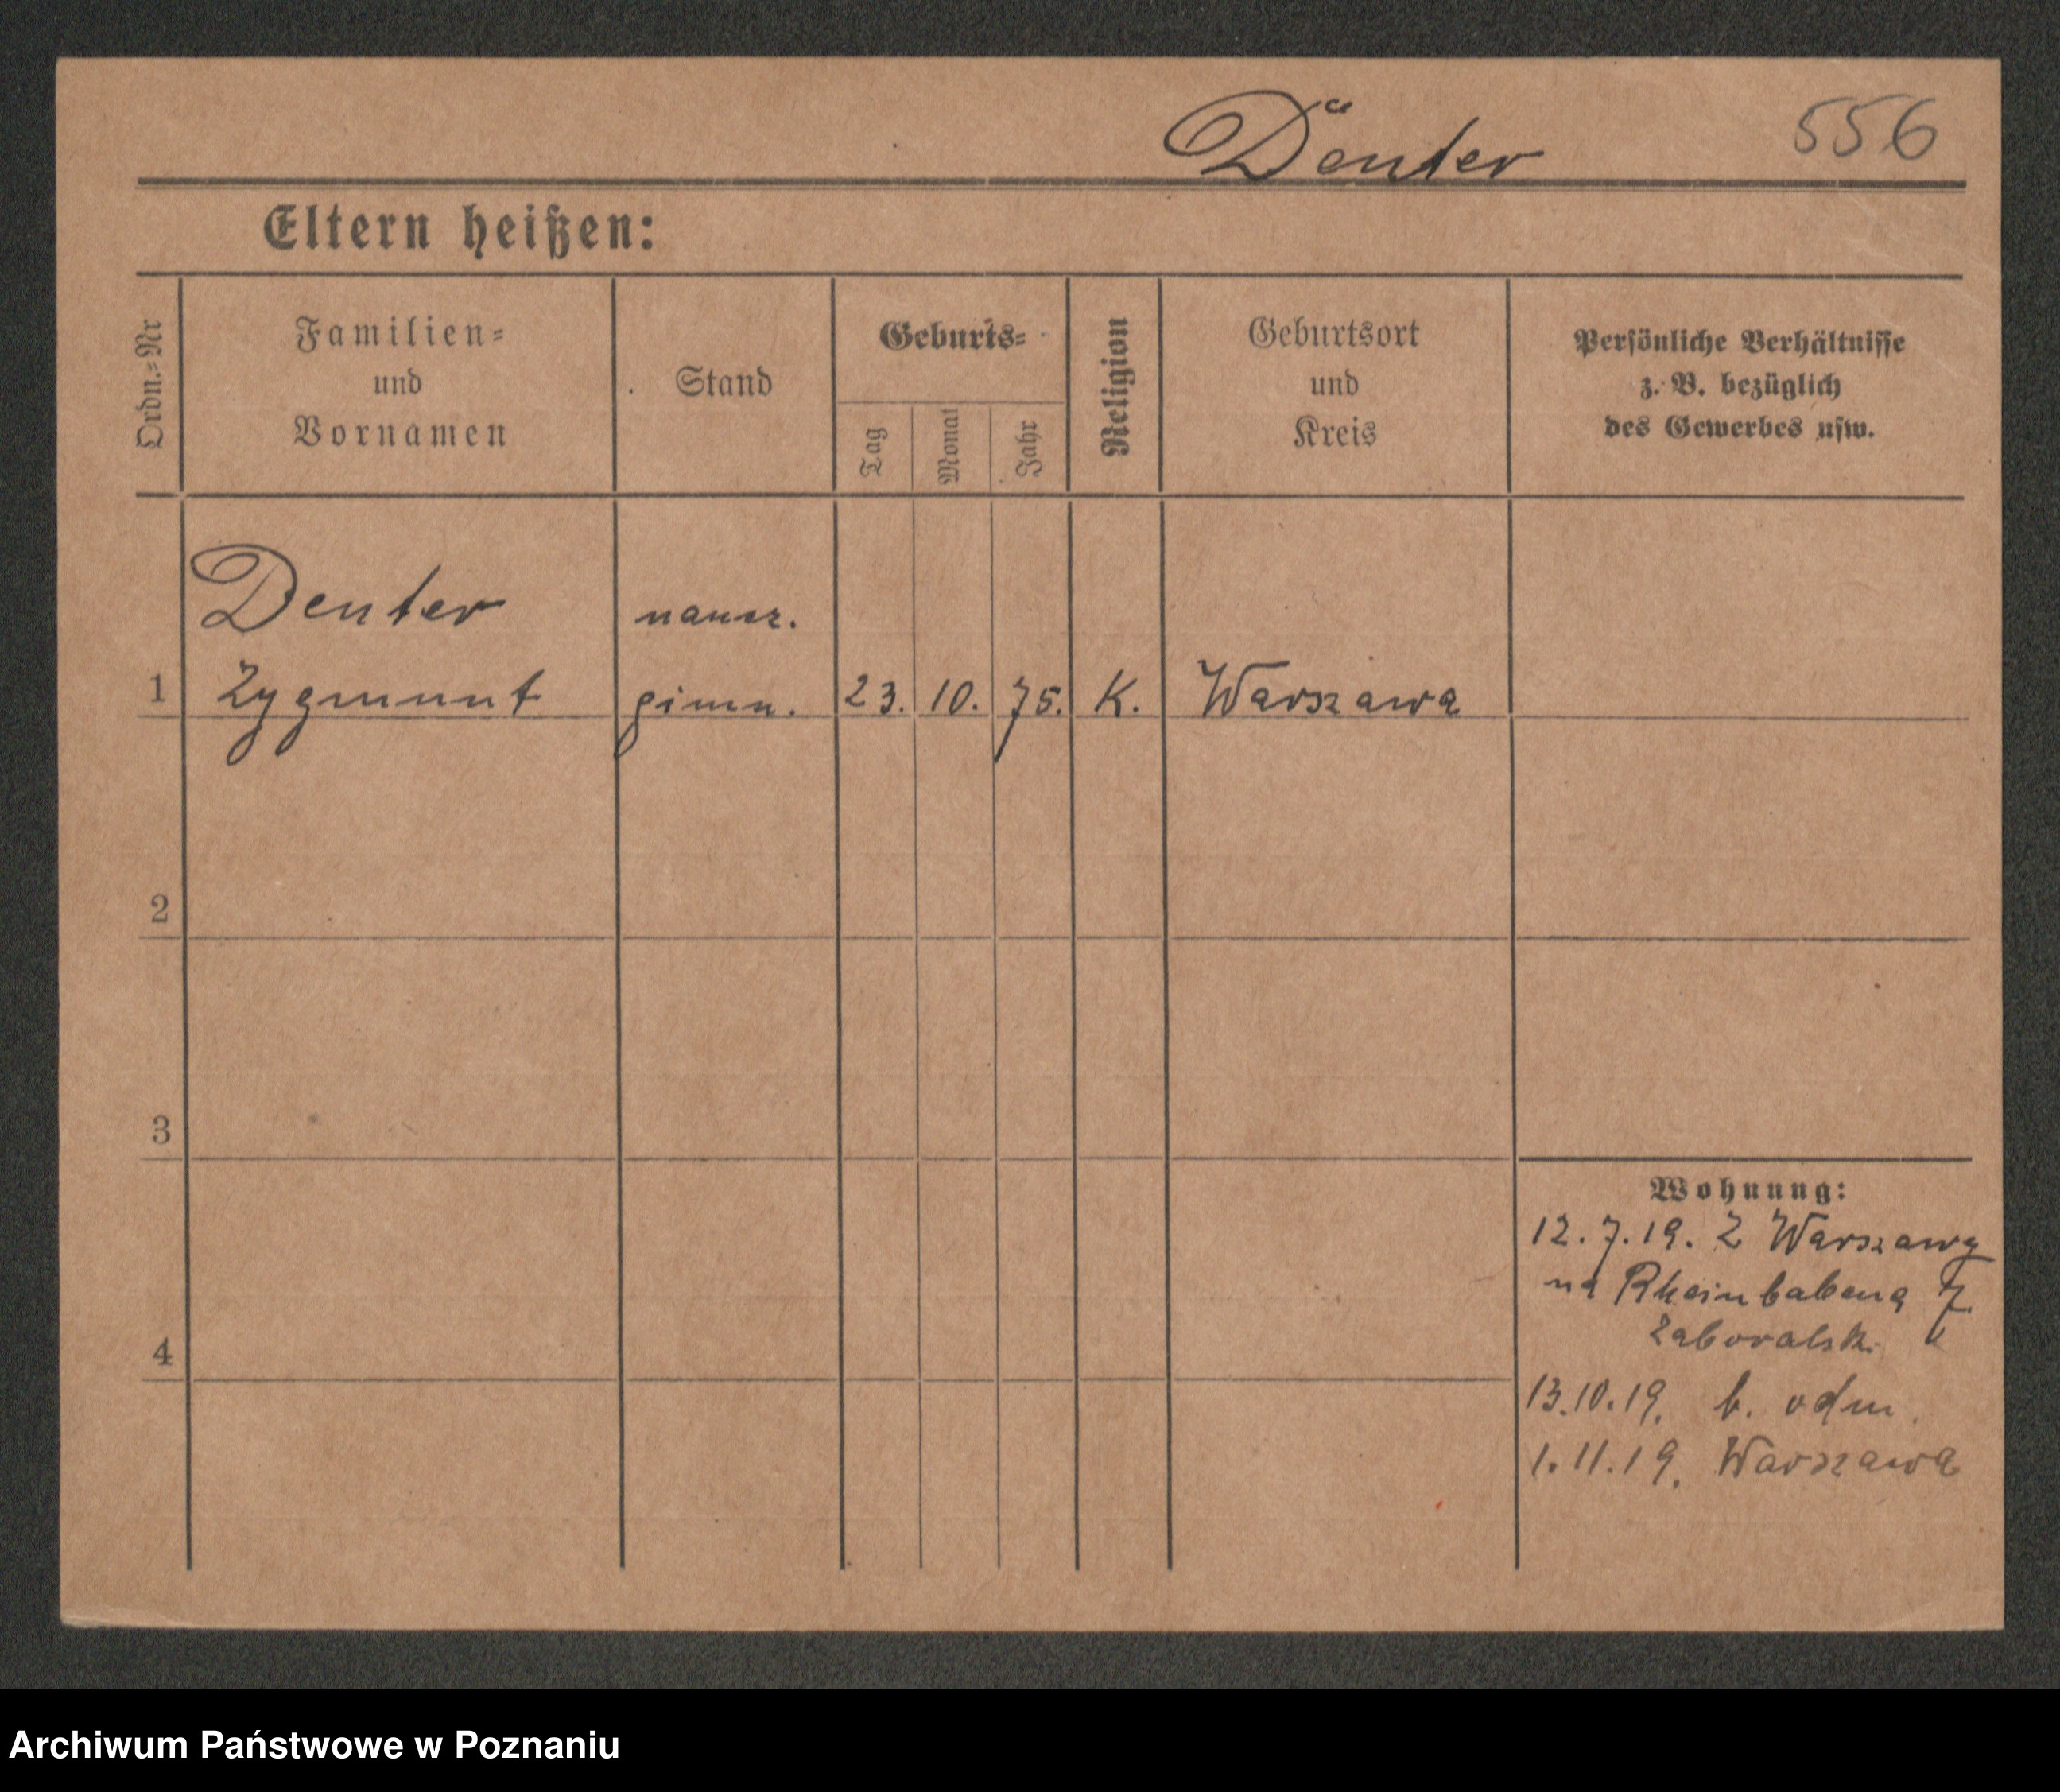 Dënter 556
Eltern heißen:
Ordn.=Nr
Familien=
und
Vornamen
Stand
Geburts=
Tag
Monat
Jahr
Religion
Geburtsort
und
Kreis
Persönliche Verhältnisse
z. B. bezüglich
des Gewerbes usw.
Denter naucz.
1 Zygmunt gimn. 23. 10. 75. K. Warszawa
2
3
4
Wohnung:
12.7.19. Z Warszawy
na Rheinbabena 7.
13.10.19. b. odm.
1.11.19. Warszawa
Archiwum Państwowe w Poznaniu